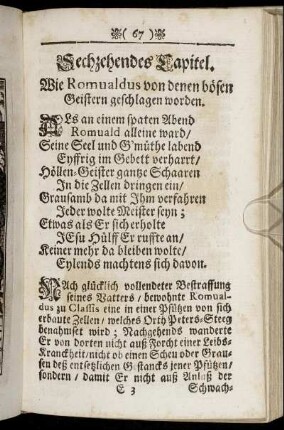 ( 67 )
Sechzehendes Capitel.
Wie Romualdus von denen bösen
Geistern geschlagen worden.
ALs an einem spaten Abend
Romuald alleine ward/
Seine Seel und G'müthe labend
Eyffrig im Gebett verharrt/
Höllen-Geister gantze Schaaren
In die Zellen dringen ein/
Grausamb da mit Ihm verfahren
Jeder wolte Meister seyn;
Etwas als Er sich erholte
JEsu Hülff Er ruffte an/
Keiner mehr da bleiben wolte/
Eylends machtens sich davon.
NAch glücklich vollendeter Bestraffung
seines Vatters/ bewohnte Romual-
dus zu Classis eine in einer Pfützen von sich
erbaute Zellen/ welches Orth Peters-Steeg
benahmset wird; Nachgehends wanderte
Er von dorten nicht auß Forcht einer Leibs-
Kranckheit/ nicht ob einen Scheu oder Grau-
sen deß entsetzlichen Gestancks jener Pfützen/
sondern/ damit Er nicht auß Anlaß der
E 3 Schwach-